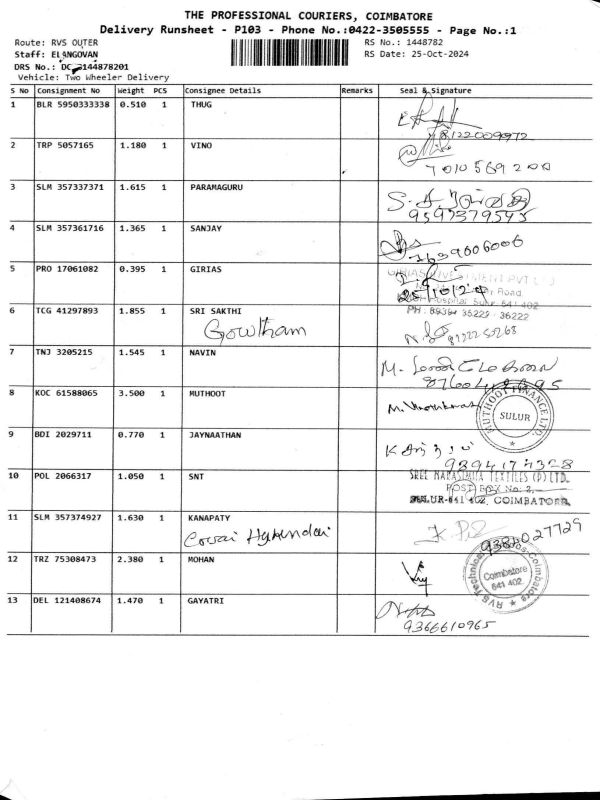 THE PROFESSIONAL COURIERS, COIMBATORE
Delivery Runsheet - P103 - Phone No.:0422-3505555 - Page No.:1
Route: RVS OUTER RS No.: 1448782
Staff: ELANGOVAN RS Date: 25-Oct-2024
DRS No.: 144878201
Vehicle: Two Wheeler Delivery
S No Consignment No Weight PCS Consignee Details Remarks Seal & Signature
1 BLR 5950333338 0.510 1 THUG
8122009972
2 TRP 5057165 1.180 1 VINO
7010569200
3 SLM 357337371 1.615 1 PARAMAGURU
9597379545
4 SLM 357361716 1.365 1 SANJAY
5 PRO 17061082 0.395 1 GIRIAS
6 TCG 41297893 1.855 1 SRI SAKTHI
Gowtham
7 TNJ 3205215 1.545 1 NAVIN
8 KOC 61588065 3.500 1 MUTHOOT
MUTHOOT FINANCE LTD.
SULUR
9 BDI 2029711 0.770 1 JAYNAATHAN
9894174328
10 POL 2066317 1.050 1 SNT
SREE NARASIMHA TEXTILES (P) LTD.
POST BOX No. 2,
SULUR-641 402, COIMBATORE
11 SLM 357374927 1.630 1 KANAPATY
9384027729
12 TRZ 75308473 2.380 1 MOHAN
Coimbatore
641 402
13 DEL 121408674 1.470 1 GAYATRI
9366610965